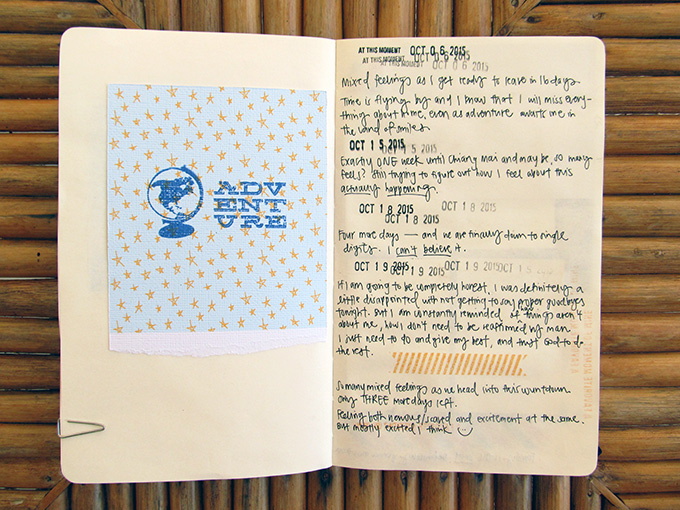 ADV
ENT
URE
AT THIS MOMENT OCT 06 2015
AT THIS MOMENT OCT 06 2015
Mixed feelings as I get ready to leave in 16 days.
Time is flying by and I know that I will miss every-
thing about home, even as adventure awaits me in
the land of smiles.
OCT 15 2015
Exactly ONE week until Chiang Mai and maybe, so many
feels? Still trying to figure out how I feel about this
actually happening.
OCT 18 2015 OCT 18 2015
OCT 18 2015
Four more days — and we are finally down to single
digits. I can't believe it.
OCT 19 2015 OCT 19 2015 OCT 18 2015
If I am going to be completely honest, I was definitely a
little disappointed with not getting to say proper goodbyes
tonight. But I am constantly reminded that things aren't
about me, how I don't need to be reaffirmed by man.
I just need to go and give my best, and trust God to do
the rest.
So many mixed feelings as we head into this countdown
only THREE more days left.
Feeling both nervous/scared and excitement at the same.
But mostly excited I think